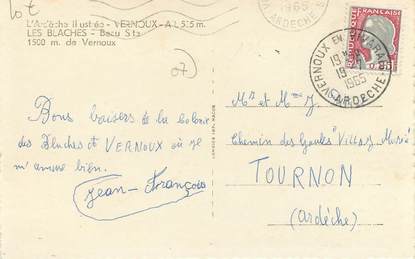 L'Ardèche Illustrée - VERNOUX - Alt. 585 m.
LES BLACHES - Beau Site
1500 m. de Vernoux
07
Bons baisers de la colonie
des Blaches et VERNOUX où je
m'amuse bien.
Jean-François
FRANÇAISE
0,25
VERNOUX EN VIVARAIS
19
1965
ARDECHE
Mr et Mme J.
Chemin des Gaules Villa
TOURNON
(Ardèche)